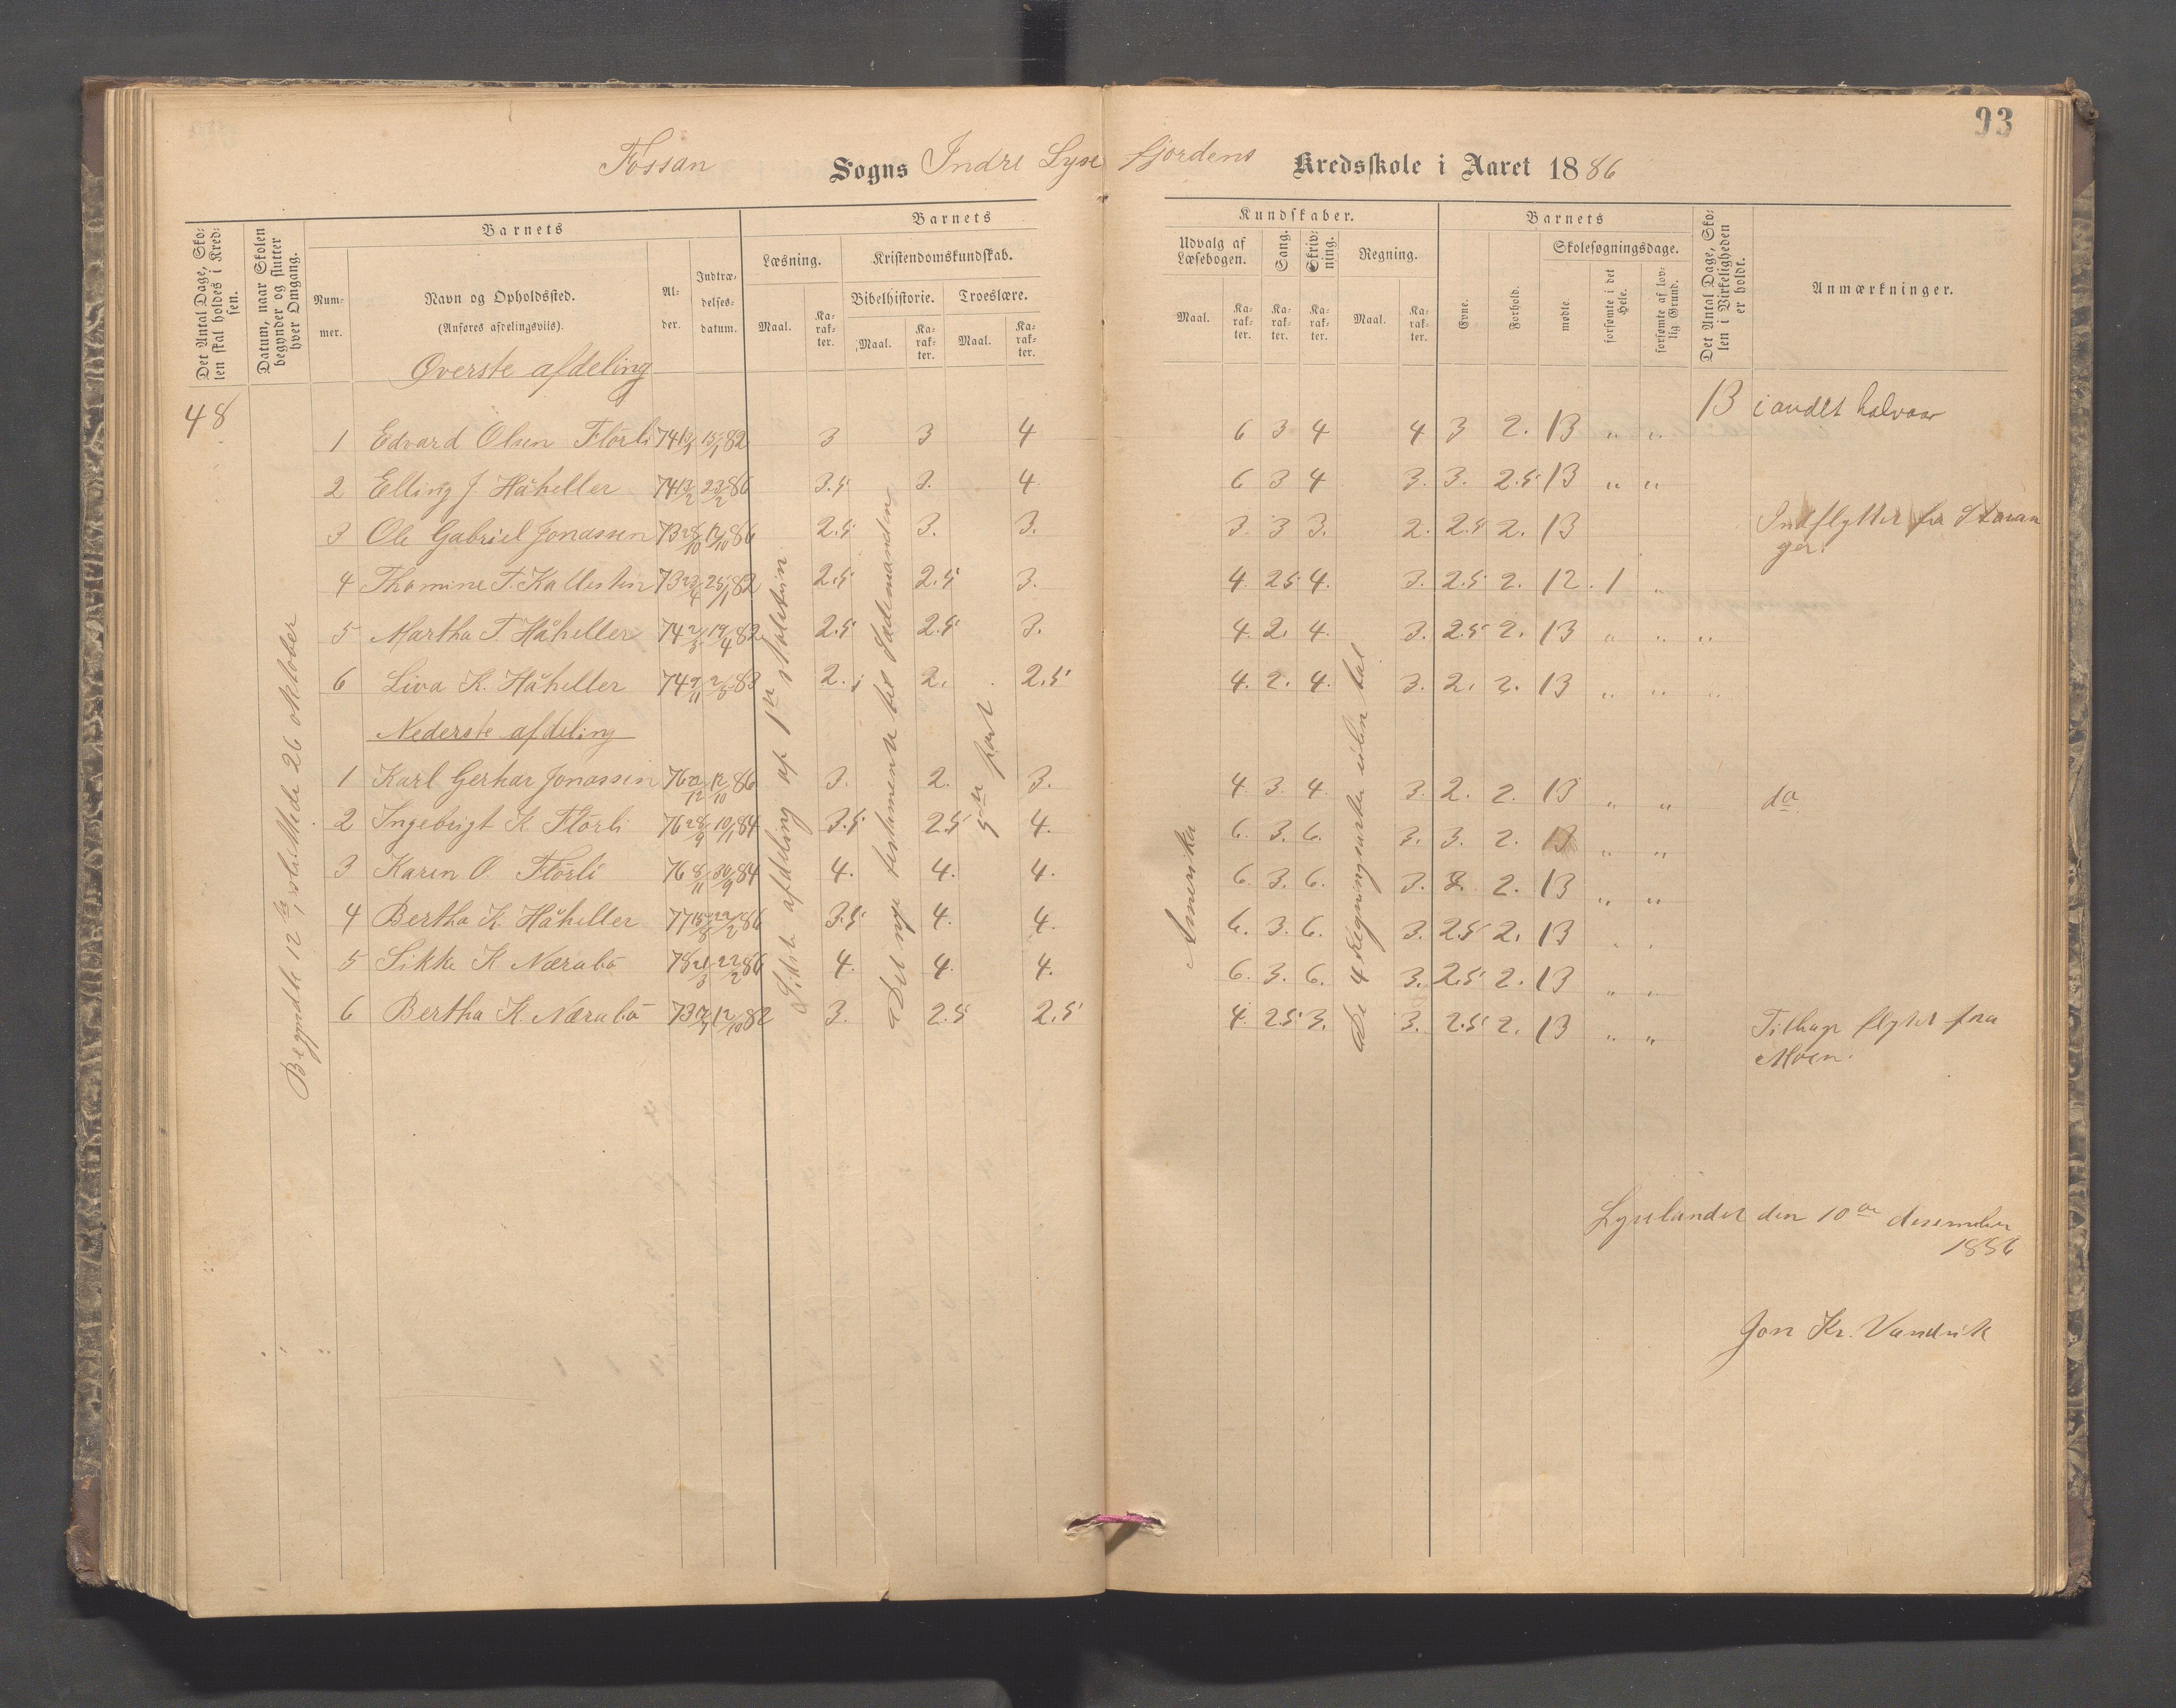 93
Fossan Sogns Indre Lysefjordens Kredsskole i Aaret 1886
Det Antal Dage, Skolen skal holdes i Kredsen.
Datum, naar Skolen begynder og slutter hver Omgang.
Barnets
Nummer.
Navn og Opholdssted.
(Anføres afdelingsviis).
Alder.
Indtrædelsesdatum.
Barnets
Læsning.
Maal.
Karakter.
Kristendomskundskab.
Bibelhistorie.
Maal.
Karakter.
Troeslære.
Maal.
Karakter.
Kundskaber.
Udvalg af Læsebogen.
Maal.
Karakter.
Sang.
Karakter.
Skrivning.
Karakter.
Regning.
Maal.
Karakter.
Barnets
Evne.
Forhold.
Skolesøgningsdage.
mødte.
forsømte i det Hele.
forsømte af lovlig Grund.
Det Antal Dage, Skolen i Virkeligheden er holdt.
Anmærkninger.
Øverste afdeling
48
13 i andet halvaar
Begyndte 12te, sluttede 26 oktober
1 Edvard Olsen Flörli 74 13/1 15/1 82 3 3 4 6 3 4 4 3 2. 13 " "
2 Elling J. Håheller 74 13/2 23/2 86 3.5 3. 4. 6 3 4 3. 3. 2.5 13 " "
3 Ole Gabriel Jonassen 73 28/10 12/10 86 2.5 3. 3. 3. 3 3. 2. 2.5 2. 13 Indflytter fra Stavanger.
4 Thomine T. Kallesten 73 23/4 25/1 82 2.5 2.5 3. 4. 2.5 4. 3. 2.5 2. 12. 1 "
5 Martha T. Håheller 74 2/3 19/4 82 2.5 2.5 3. 4. 2. 4. 3. 2.5 2. 13 " " "
6 Liva K. Håheller 74 9/11 2/3 83 2. 2. 2.5 4. 2. 4. 3. 2. 2. 13 " " "
Nederste afdeling
1 Karl Gerhar Jonassen 76 22/12 12/10 86 3. 2. 3. 4. 3. 4. 3. 2. 2. 13 " " do
2 Ingebrigt K. Flörli 76 28/9 10/1 84 3.5 2.5 4. 6. 3. 6. 3. 3. 2. 13 " "
3 Karen O. Flörli 76 8/11 30/9 84 4. 4. 4. 6. 3. 6. 3. 3. 2. 13 " "
4 Bertha K. Håheller 77 15/8 22/2 86 3.5 4. 4. 6. 3. 6. 3. 2.5 2. 13 " "
5 Sikke K Nærabö 78 21/3 22/2 86 4. 4. 4. 6. 3. 6. 3. 2.5 2. 13 " "
6 Bertha K. Nærabö 73 12/10 82 3. 2.5 2.5 4. 2.5 3. 3. 2.5 2. 13 " " Tilhuge flyttet fra Moen.
Sidste afdeling af 1ste skoletrin
Det nye testamente til Sædemanden
5te part
Amerika
De 4 Regningsarter uden tal
Lyselandet den 10de desember
1886
Jon Kr. Vandvik